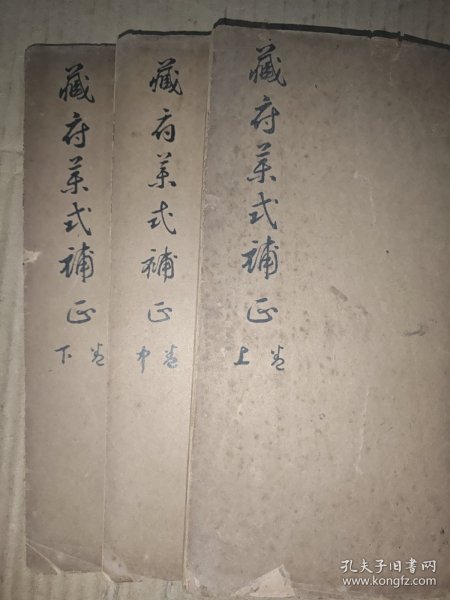 藏府药式補正
上卷
藏府药式補正
中卷
藏府药式補正
下卷
孔夫子旧书网
www.kongfz.com